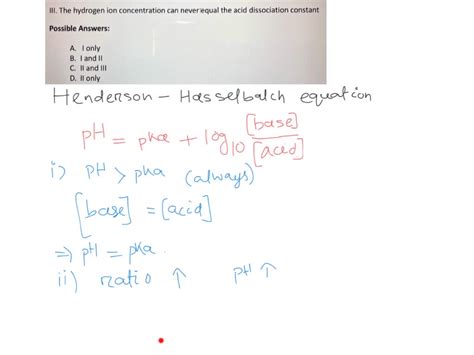 III. The hydrogen ion concentration can never equal the acid dissociation constant
Possible Answers:
A. I only
B. I and II
C. II and III
D. II only
Henderson - Hasselbalch equation
pH = pKa + log10 [base]/[acid]
i) pH > pKa (always)
[base] = [acid]
⇒ pH = pKa.
ii) ratio ↑ pH ↑